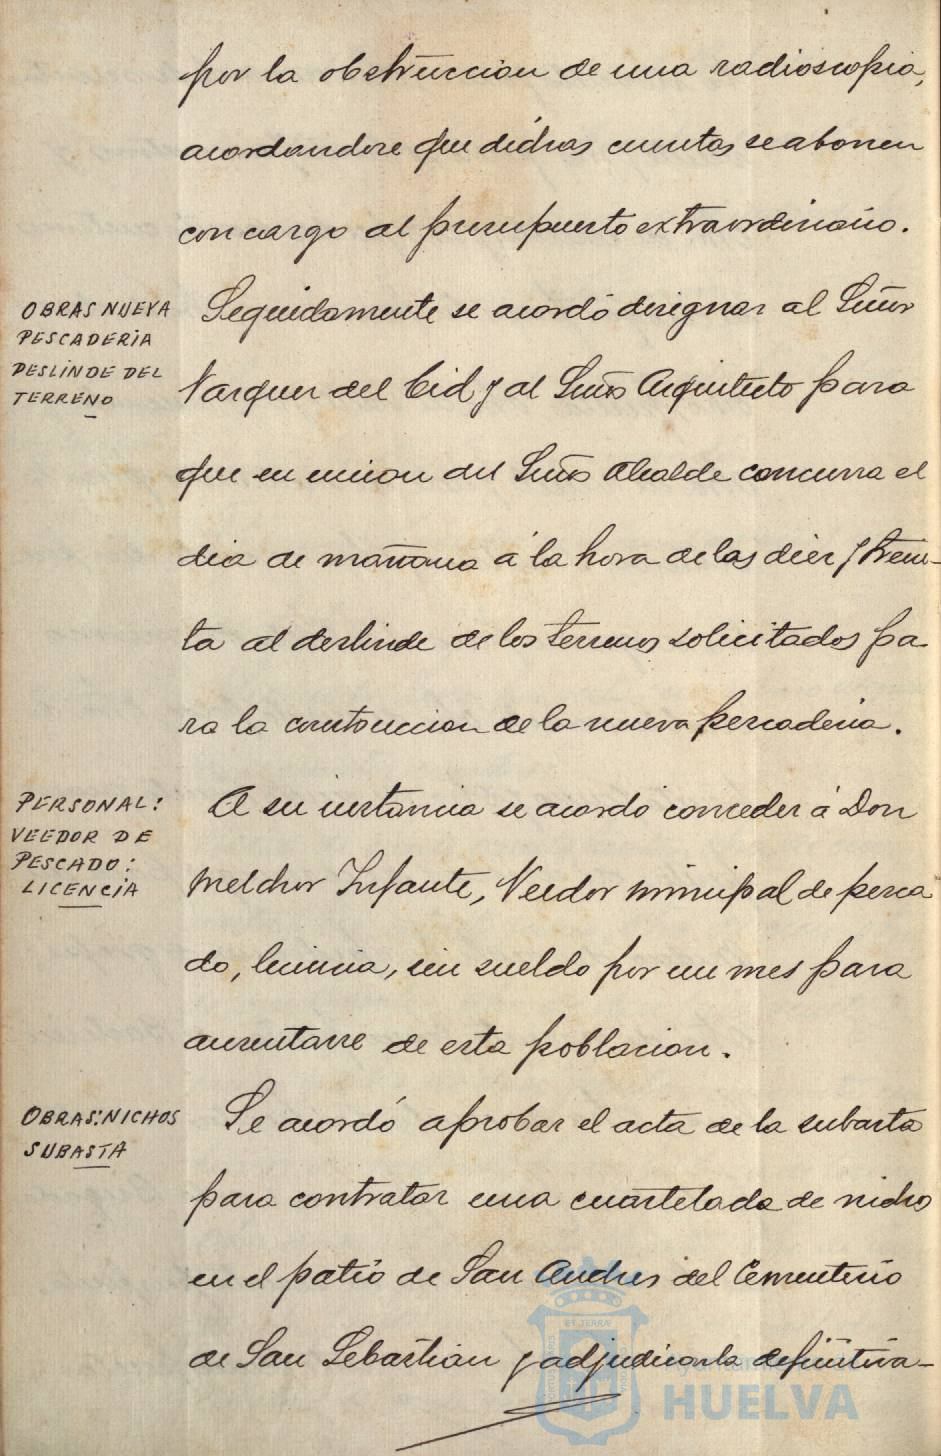 por la obstruccion de una radioscopia,
acordandose que dichas cuentas se abonen
con cargo al presupuesto extraordinario.
OBRAS NUEVA
PESCADERIA
DESLINDE DEL
TERRENO
Seguidamente se acordó designar al Señor
Vazquez del Cid y al Señor Arquitecto para
que en union del Señor Alcalde concurra el
dia de mañana á la hora de las diez y trein-
ta al deslinde de los terrenos solicitados pa-
ra la construccion de la nueva pescaderia.
PERSONAL:
VEEDOR DE
PESCADO:
LICENCIA
A su instancia se acordó conceder á Don
Melchor Infante, Veedor municipal de pesca
do, licencia, sin sueldo por un mes para
ausentarse de esta poblacion.
OBRAS: NICHOS
SUBASTA
Se acordó aprobar el acta de la subasta
para contratar una cuartelada de nichos
en el patio de San Andres del Cementerio
de San Sebastián y adjudicarla definitiva-
HUELVA